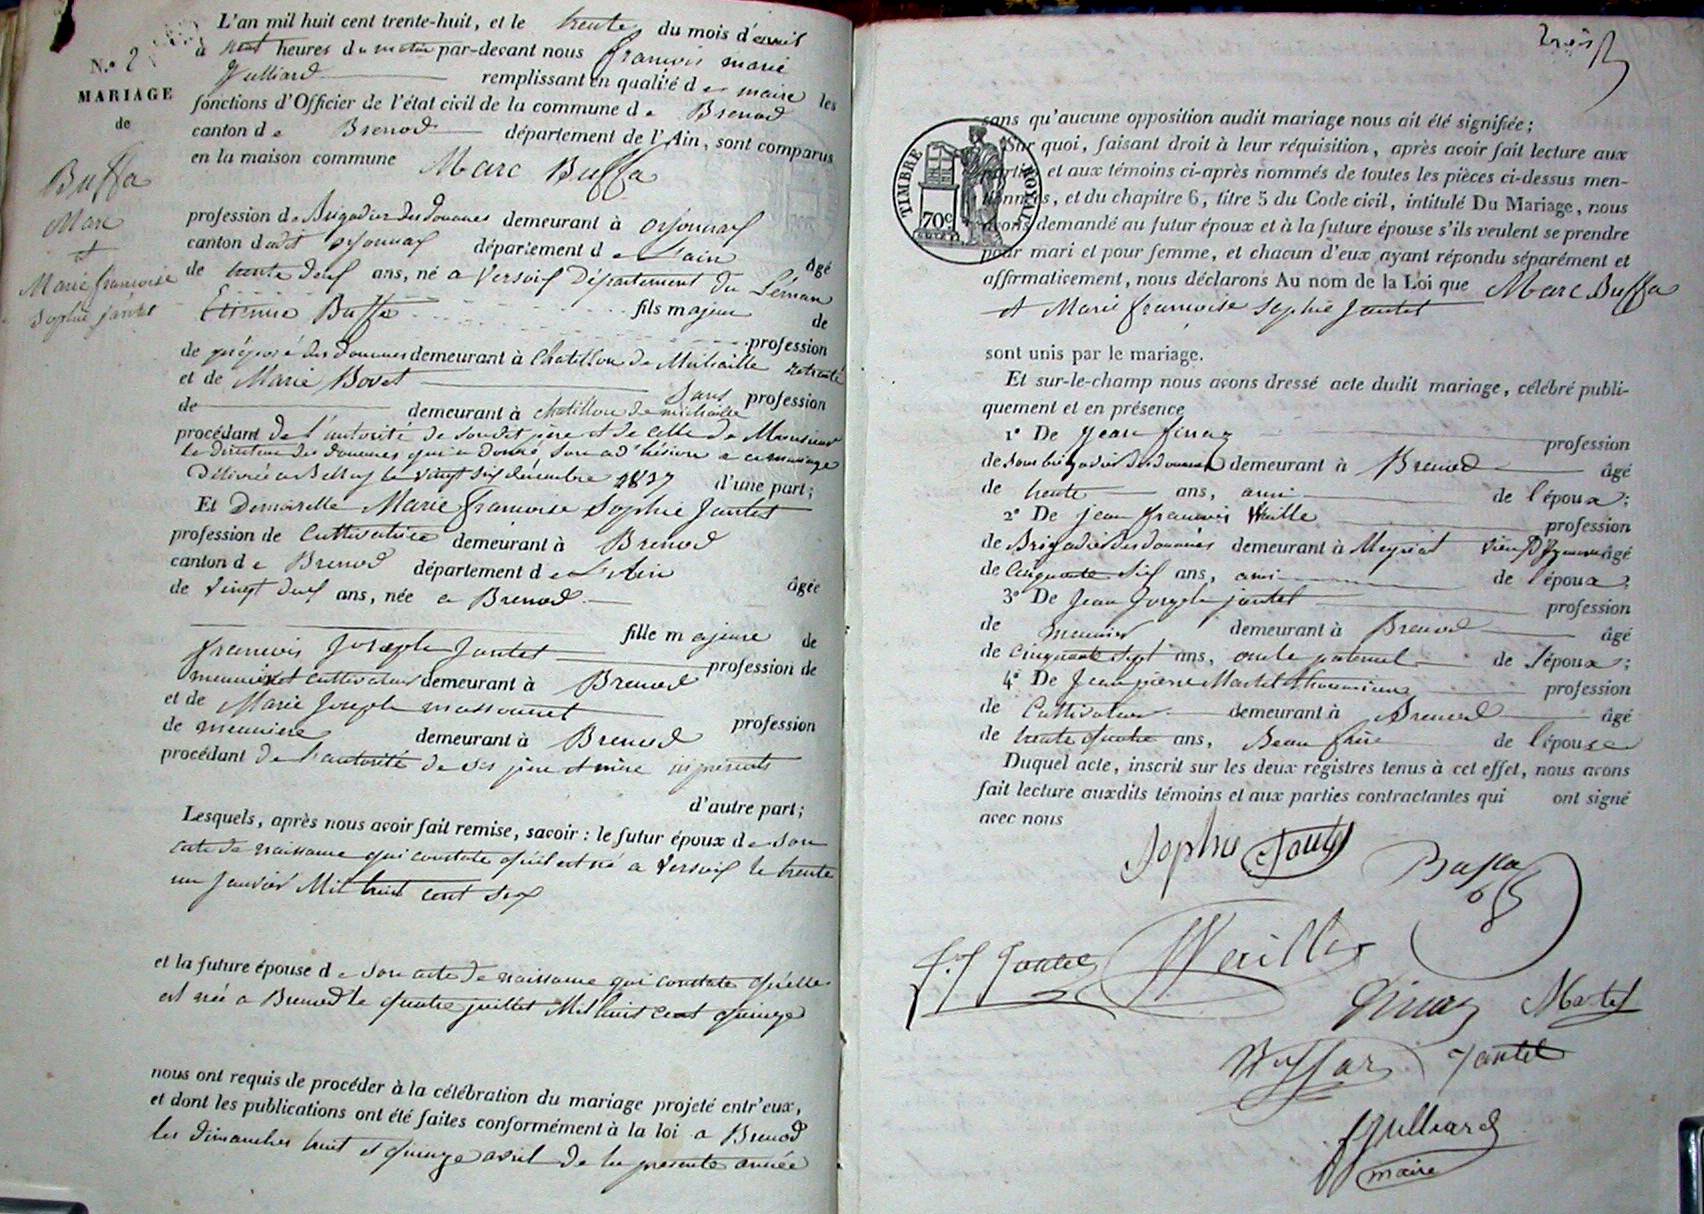 L'an mil huit cent trente-huit, et le trente du mois d'avril
à heures du matin par-devant nous françois marie
Julliard remplissant en qualité de maire les
fonctions d'Officier de l'état civil de la commune de Brenod
canton de Brenod département de l'Ain, sont comparus
en la maison commune Marc Buffa
N.° 2
MARIAGE
de
Buffa
Marc
et
Marie françoise
Sophie jantet
profession de Brigadier des douanes demeurant à oyonnax
canton dudit oyonnax département de L'ain âgé
de trente deux ans, né a Versoix Département du Léman
fils majeur de
Etienne Buffa profession
de préposé des Douanes demeurant à Chatillon de Michaille retraité
et de Marie Bovet Sans profession
de demeurant à chatillon de michaille
procédant de l'autorité de sondit père et de celle de Monsieur
Le directeur des douanes qui a donné son adhésion a ce mariage
Délivrée a Belley le vingt six décembre 1837 d'une part;
Et Demoiselle Marie françoise Sophie Jantet
profession de Cultivatrice demeurant à Brenod
canton de Brenod département de L'Ain âgée
de vingt deux ans, née a Brenod
fille majeure de
françois Joseph Jantet profession de
meunier et cultivateur demeurant à Brenod
et de Marie Joseph massonnet profession
de meuniere demeurant à Brenod
procédant de l'autorité de ses père et mère ici présents
d'autre part;
Lesquels, après nous avoir fait remise, savoir : le futur époux de son
acte de naissance qui constate qu'il est né a Versoix le trente
un Janvier Mil huit cent six
et la future épouse de son acte de naissance qui constate qu'elle
est née a Brenod le quatre juillet Mil huit cent quinze
nous ont requis de procéder à la célébration du mariage projeté entr'eux,
et dont les publications ont été faites conformément à la loi a Brenod
les dimanches huit et quinze avril de la presente année
trois
TIMBRE ROYAL
70c
sans qu'aucune opposition audit mariage nous ait été signifiée;
Sur quoi, faisant droit à leur réquisition, après avoir fait lecture aux
parties et aux témoins ci-après nommés de toutes les pièces ci-dessus men-
tionnées, et du chapitre 6, titre 5 du Code civil, intitulé Du Mariage, nous
avons demandé au futur époux et à la future épouse s'ils veulent se prendre
pour mari et pour femme, et chacun d'eux ayant répondu séparément et
affirmativement, nous déclarons Au nom de la Loi que Marc Buffa
et Marie françoise Sophie Jantet
sont unis par le mariage.
Et sur-le-champ nous avons dressé acte dudit mariage, célébré publi-
quement et en présence
1° De Jean finaz profession
de sous brigadier des douanes demeurant à Brenod âgé
de trente ans, ami de l'époux;
2° De jean françois Wuille profession
de Brigadier des douanes demeurant à Meyriat âgé
de Cinquante six ans, ami de l'époux;
3° De Jean Joseph jantet profession
de meunier demeurant à Brenod âgé
de Cinquante sept ans, oncle paternel de l'épouse;
4° De Jean pierre Martel profession
de Cultivateur demeurant à Brenod âgé
de trente quatre ans, Beau frère de l'épouse
Duquel acte, inscrit sur les deux registres tenus à cet effet, nous avons
fait lecture auxdits témoins et aux parties contractantes qui ont signé
avec nous
Sophie Jantet
Buffa
J. J Jantet Wuille
finaz Martel
Jantet
Julliard
maire